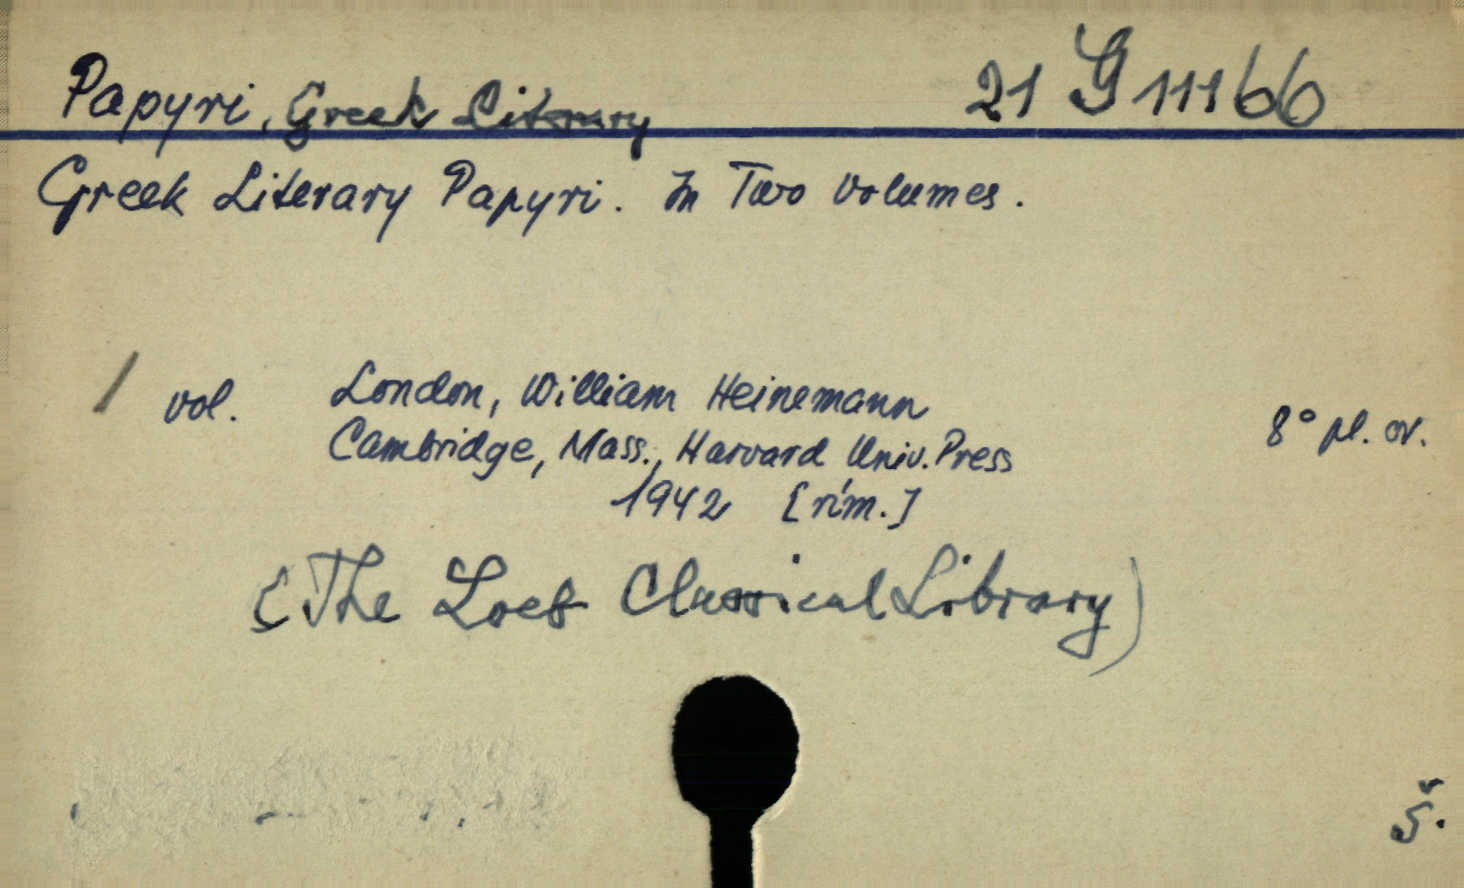 Papyri, Greek Literary 21 G 111 60
Greek Literary Papyri. In Two Volumes.
/ vol. London, William Heinemann 8° pl. ov.
Cambridge, Mass., Harvard Univ. Press
1942 [rím.]
(The Loeb Classical Library)
Š.